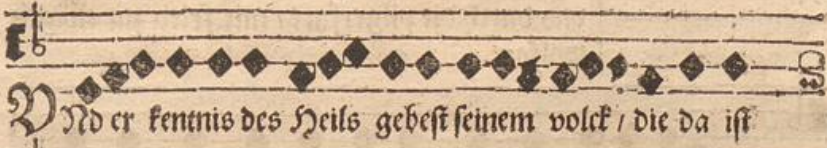 VNd er kentnis des Heils gebest seinem volck / die da ist